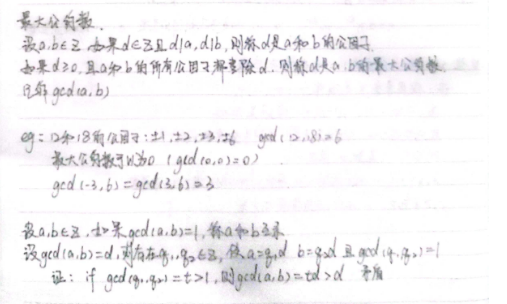 最大公约数.
设a.b∈Z 如果d∈Z且d|a,d|b,则称d是a和b的公因子
如果d≥0,且a和b的所有公因子都整除d.则称d是a.b的最大公约数.
记作gcd(a,b)
eg:12和18的公因子:±1,±2,±3,±6 gcd(12,18)=6
最大公约数可以为0 (gcd(0,0)=0)
gcd(-3,6)=gcd(3,6)=3
设a,b∈Z,如果gcd(a,b)=1,称a和b互素
设gcd(a,b)=d,则存在q₁,q₂∈Z,使a=q₁d b=q₂d 且gcd(q₁,q₂)=1
证: if gcd(q₁,q₂)=t>1,则gcd(a,b)=td>d 矛盾